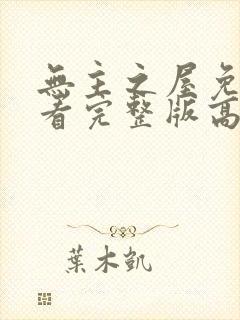 無主之屋免
看完整版高
葉木凱